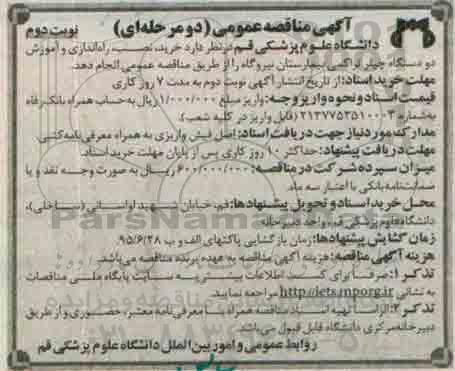 آگهی مناقصه عمومی (دو مرحله‌ای) نوبت دوم
دانشگاه علوم پزشکی قم در نظر دارد خرید، نصب، راه‌اندازی و آموزش
دو دستگاه چیلر تراکمی بیمارستان نیروگاه را از طریق مناقصه عمومی انجام دهد.
مهلت خرید اسناد: از تاریخ انتشار آگهی نوبت دوم به مدت ۷ روز کاری
قیمت اسناد و نحوه واریز وجه: واریز مبلغ ۱/۰۰۰/۰۰۰ ریال به حساب همراه بانک رفاه
به شماره ۲۱۳۷۷۵۳۵۱۰۰۰۳ (قابل واریز در کلیه شعب).
مدارک مورد نیاز جهت دریافت اسناد: اصل فیش واریزی به همراه معرفی نامه کتبی
مهلت دریافت پیشنهاد: حداکثر ۱۰ روز کاری پس از پایان مهلت خرید اسناد.
میزان سپرده شرکت در مناقصه: ۶۰۰/۰۰۰/۰۰۰ ریال به صورت وجه نقد و یا
ضمانتنامه بانکی با اعتبار سه ماه.
محل خرید اسناد و تحویل پیشنهادها: قم، خیابان شهید لواسانی (ساحلی)،
دانشگاه علوم پزشکی قم، واحد دبیرخانه
زمان گشایش پیشنهادها: زمان بازگشایی پاکتهای الف و ب ۹۵/۶/۲۸
هزینه آگهی مناقصه: هزینه آگهی مناقصه به عهده برنده مناقصه می‌باشد.
تذکر ۱: صرفاً برای کسب اطلاعات بیشتر به سایت پایگاه ملی مناقصات
به نشانی http://iets.mporg.ir مراجعه نمایید.
تذکر ۲: الزاماً تهیه اسناد مناقصه همراه با معرفی‌نامه معتبر، حضوری و از طریق
دبیرخانه مرکزی دانشگاه قابل قبول می‌باشد.
روابط عمومی و امور بین الملل دانشگاه علوم پزشکی قم